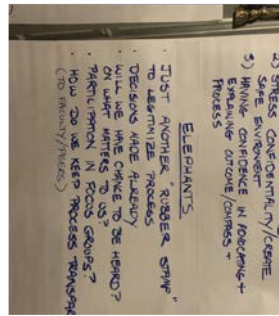 2) STRESS CONFIDENTIALITY/CREATE
SAFE ENVIRONMENT
3) HAVING CONFIDENCE IN ADVOCATING +
EXPLAINING OUTCOME/COMPASS +
PROCESS
ELEPHANTS
· JUST ANOTHER "RUBBER STAMP"
TO LEGITIMIZE PROCESS
· DECISIONS MADE ALREADY
· WILL WE HAVE CHANCE TO BE HEARD?
ON WHAT MATTERS TO US?
· PARTICIPATION IN FOCUS GROUPS?
· HOW DO WE KEEP PROCESS TRANSPAR
(TO FACULTY/PEERS)